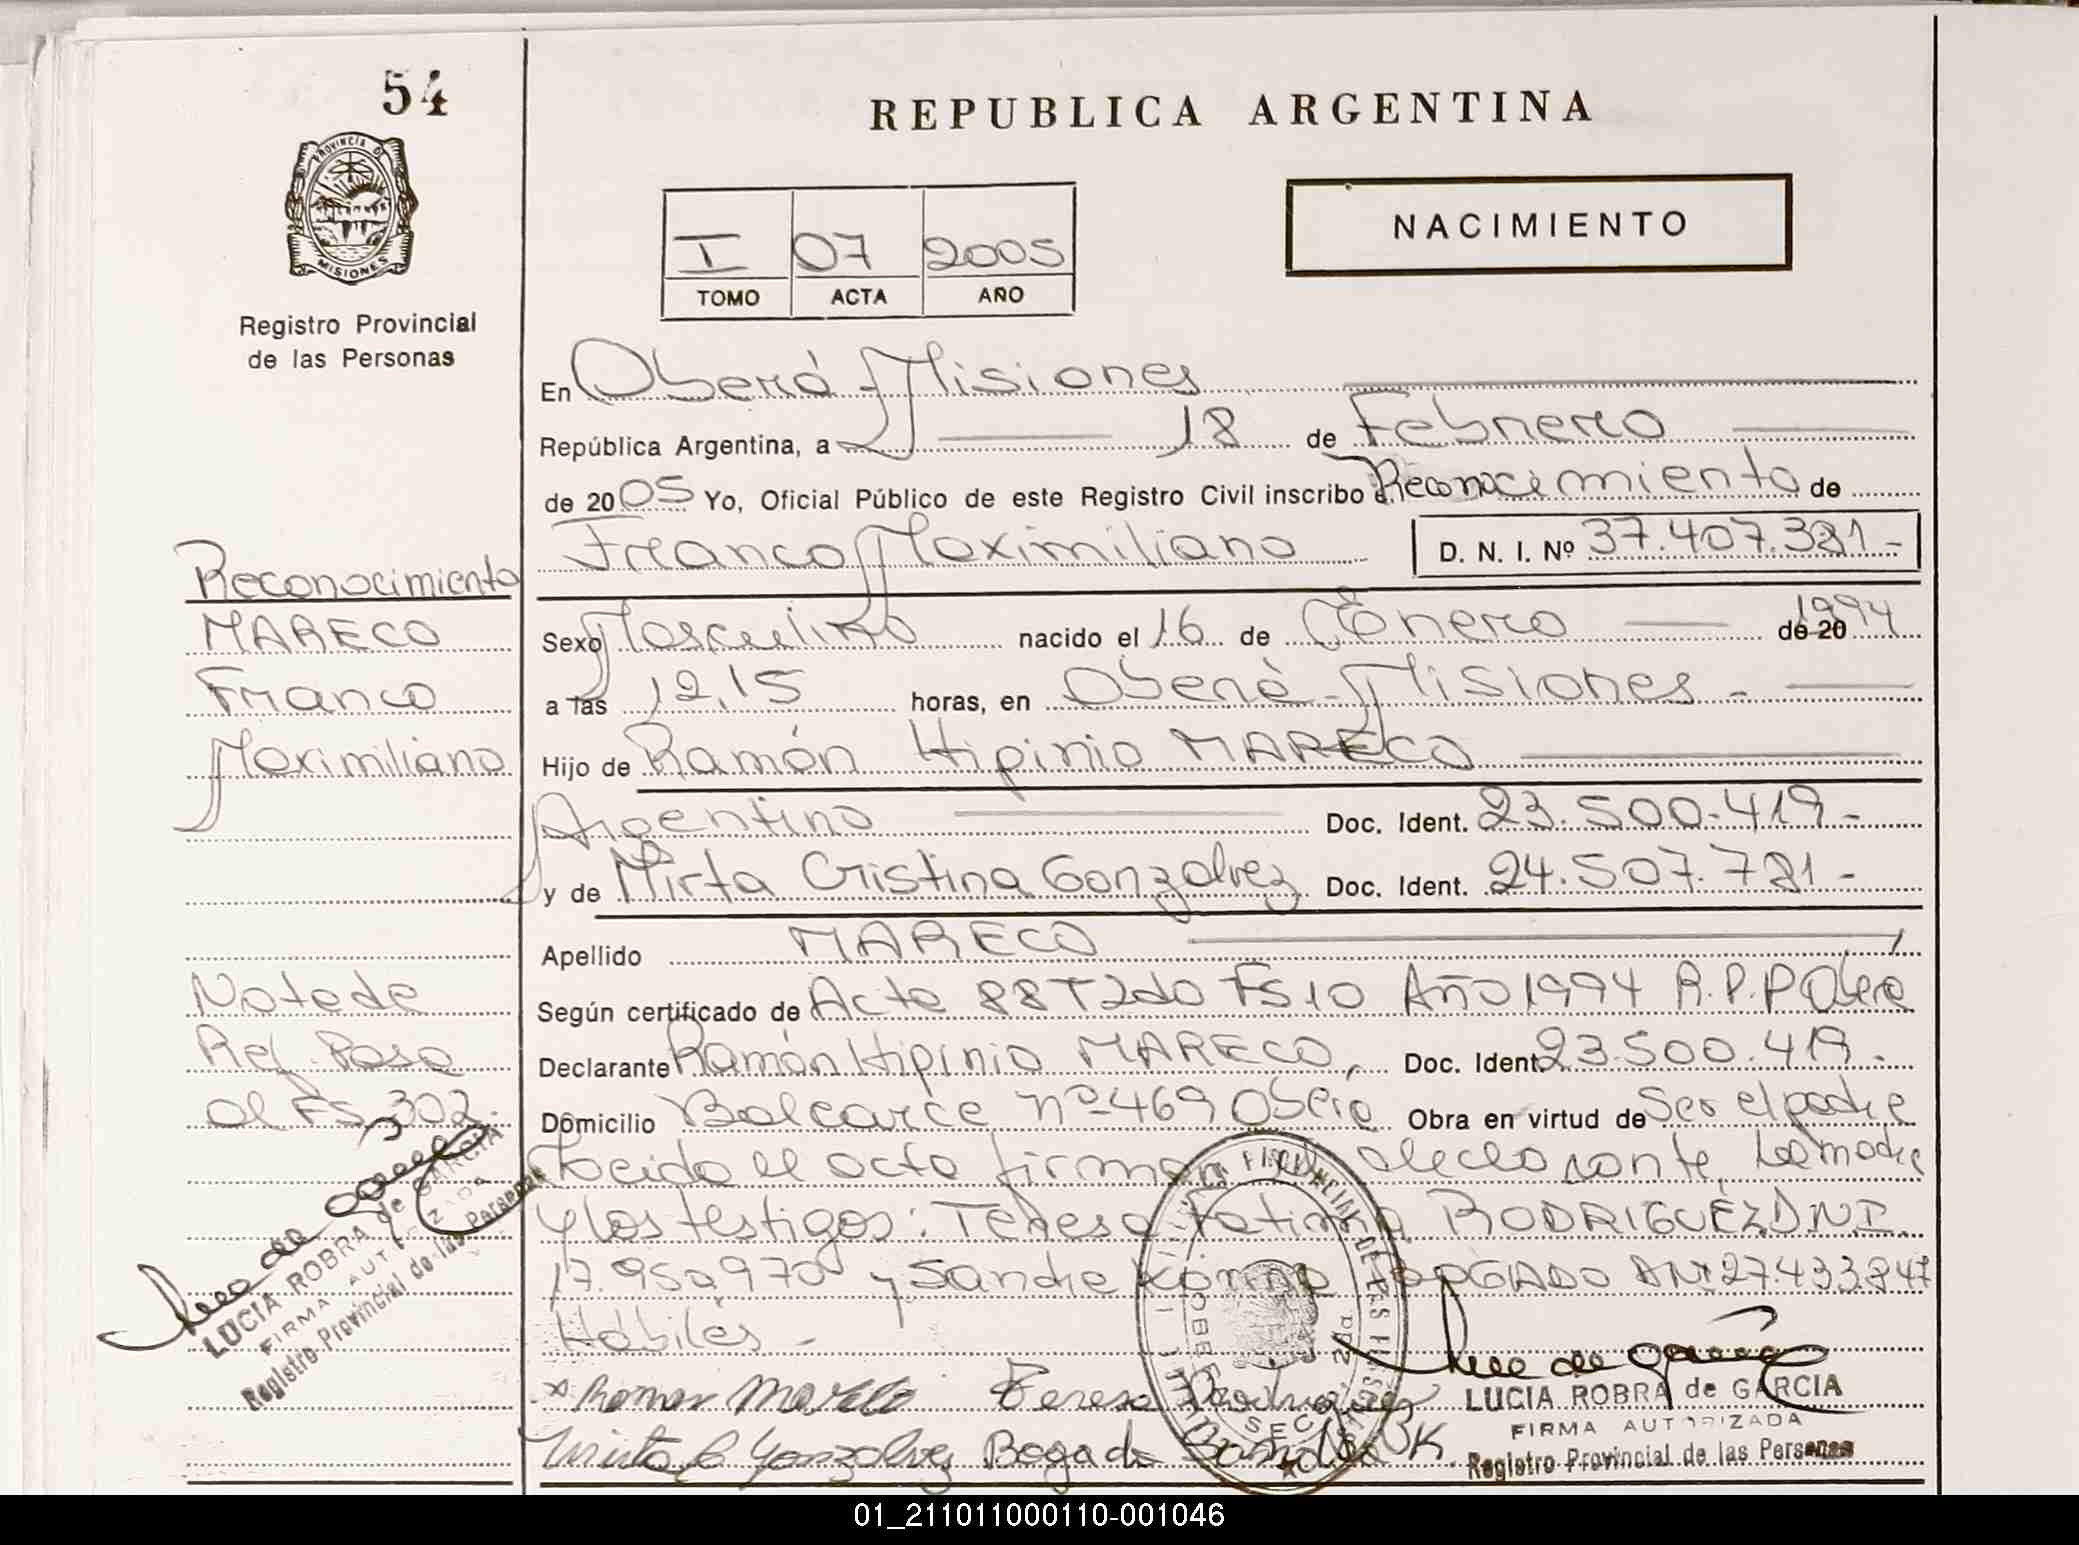 54
PROVINCIA DE
MISIONES
Registro Provincial
de las Personas
REPUBLICA ARGENTINA
NACIMIENTO
I 07 2005
TOMO ACTA AÑO
En Oberá Misiones
República Argentina, a 18 de Febrero
de 2005 Yo, Oficial Público de este Registro Civil inscribo Reconocimiento de
Franco Maximiliano D. N. I. Nº 37.407.381-
Sexo Masculino nacido el 16 de Enero de 20 1994
a las 12,15 horas, en Oberá-Misiones-
Hijo de Ramón Hipinio MARECO
Argentino Doc. Ident. 23.500.419-
y de Mirta Cristina Gonzalvez Doc. Ident. 24.507.781-
Apellido MARECO
Según certificado de Acta 88 T 2do Fs 10 Año 1994 R.P.P Obera
Declarante Ramón Hipinio MARECO, Doc. Ident. 23.500.419.-
Domicilio Balcarce nº 469 Obera Obra en virtud de Ser el padre
el acta firman el declarante, la madre
y los testigos: Teresa Fatima RODRIGUEZ D.N.I.
17.952970 y Sandra BOGADO DNI 27.433.847
Hábiles-
Reconocimiento
MARECO
Franco
Maximiliano
Nota de
Ref. Pasa
al Fs. 302.
LUCIA ROBRA de GARCIA
FIRMA AUTORIZADA
Registro Provincial de las Personas
x Ramon Mareco Teresa Rodriguez
Mirta C Gonzalvez Bogado Sandra K.
LUCIA ROBRA de GARCIA
FIRMA AUTORIZADA
Registro Provincial de las Personas
01_211011000110-001046